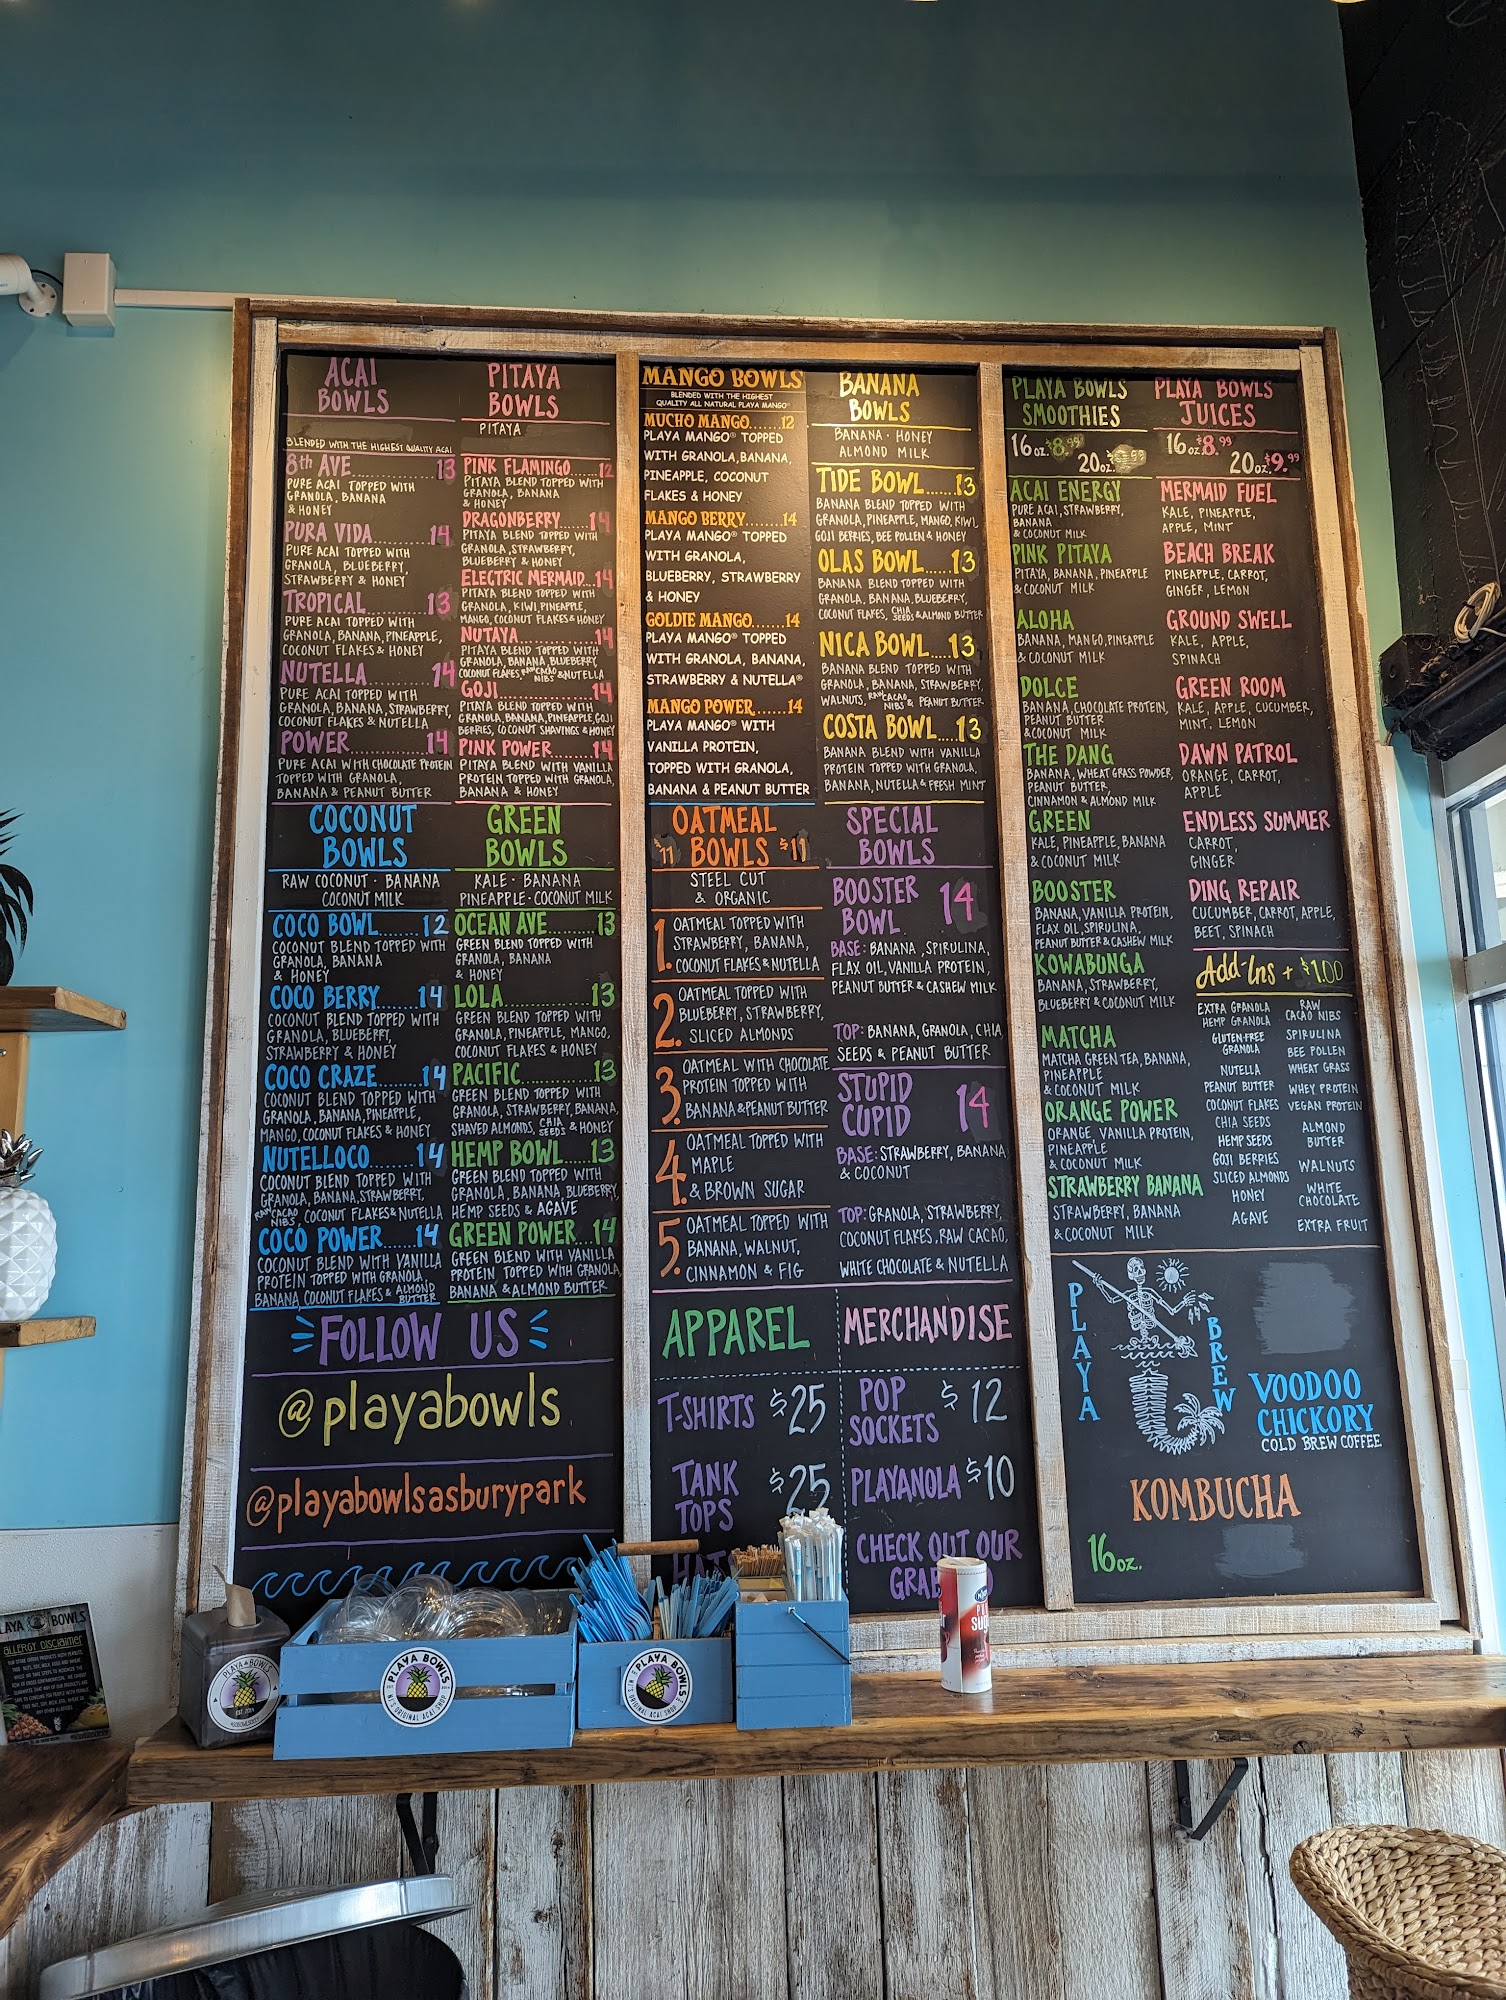 ACAI
BOWLS
BLENDED WITH THE HIGHEST QUALITY ACAI
8th AVE............13
PURE ACAI TOPPED WITH
GRANOLA, BANANA
& HONEY
PURA VIDA..........14
PURE ACAI TOPPED WITH
GRANOLA, BLUEBERRY,
STRAWBERRY & HONEY
TROPICAL..........13
PURE ACAI TOPPED WITH
GRANOLA, BANANA, PINEAPPLE,
COCONUT FLAKES & HONEY
NUTELLA...........14
PURE ACAI TOPPED WITH
GRANOLA, BANANA, STRAWBERRY,
COCONUT FLAKES & NUTELLA
POWER.............14
PURE ACAI WITH CHOCOLATE PROTEIN
TOPPED WITH GRANOLA,
BANANA & PEANUT BUTTER
PITAYA
BOWLS
PITAYA
PINK FLAMINGO......12
PITAYA BLEND TOPPED WITH
GRANOLA, BANANA
& HONEY
DRAGONBERRY......14
PITAYA BLEND TOPPED WITH
GRANOLA, STRAWBERRY,
BLUEBERRY & HONEY
ELECTRIC MERMAID...14
PITAYA BLEND TOPPED WITH
GRANOLA, KIWI, PINEAPPLE,
MANGO, COCONUT FLAKES & HONEY
NUTAYA...........14
PITAYA BLEND TOPPED WITH
GRANOLA, BANANA, BLUEBERRY,
COCONUT FLAKES, RAW CACAO NIBS & NUTELLA
GOJI..............14
PITAYA BLEND TOPPED WITH
GRANOLA, BANANA, PINEAPPLE, GOJI
BERRIES, COCONUT SHAVINGS & HONEY
PINK POWER........14
PITAYA BLEND WITH VANILLA
PROTEIN TOPPED WITH GRANOLA,
BANANA & HONEY
COCONUT
BOWLS
RAW COCONUT · BANANA
COCONUT MILK
COCO BOWL.......12
COCONUT BLEND TOPPED WITH
GRANOLA, BANANA
& HONEY
COCO BERRY......14
COCONUT BLEND TOPPED WITH
GRANOLA, BLUEBERRY,
STRAWBERRY & HONEY
COCO CRAZE......14
COCONUT BLEND TOPPED WITH
GRANOLA, BANANA, PINEAPPLE,
MANGO, COCONUT FLAKES & HONEY
NUTELLOCO.......14
COCONUT BLEND TOPPED WITH
GRANOLA, BANANA, STRAWBERRY,
RAW CACAO NIBS, COCONUT FLAKES & NUTELLA
COCO POWER......14
COCONUT BLEND WITH VANILLA
PROTEIN TOPPED WITH GRANOLA,
BANANA, COCONUT FLAKES & ALMOND BUTTER
GREEN
BOWLS
KALE · BANANA
PINEAPPLE · COCONUT MILK
OCEAN AVE.......13
GREEN BLEND TOPPED WITH
GRANOLA, BANANA
& HONEY
LOLA..............13
GREEN BLEND TOPPED WITH
GRANOLA, PINEAPPLE, MANGO,
COCONUT FLAKES & HONEY
PACIFIC............13
GREEN BLEND TOPPED WITH
GRANOLA, STRAWBERRY, BANANA,
SHAVED ALMONDS, CHIA SEEDS & HONEY
HEMP BOWL......13
GREEN BLEND TOPPED WITH
GRANOLA, BANANA, BLUEBERRY,
HEMP SEEDS & AGAVE
GREEN POWER....14
GREEN BLEND WITH VANILLA
PROTEIN TOPPED WITH GRANOLA
BANANA & ALMOND BUTTER
FOLLOW US
@playabowls
@playabowlsasburypark
MANGO BOWLS
BLENDED WITH THE HIGHEST
QUALITY ALL NATURAL PLAYA MANGO®
MUCHO MANGO......12
PLAYA MANGO® TOPPED
WITH GRANOLA, BANANA,
PINEAPPLE, COCONUT
FLAKES & HONEY
MANGO BERRY........14
PLAYA MANGO® TOPPED
WITH GRANOLA,
BLUEBERRY, STRAWBERRY
& HONEY
GOLDIE MANGO.......14
PLAYA MANGO® TOPPED
WITH GRANOLA, BANANA,
STRAWBERRY & NUTELLA®
MANGO POWER......14
PLAYA MANGO® WITH
VANILLA PROTEIN,
TOPPED WITH GRANOLA,
BANANA & PEANUT BUTTER
BANANA
BOWLS
BANANA · HONEY
ALMOND MILK
TIDE BOWL......13
BANANA BLEND TOPPED WITH
GRANOLA, PINEAPPLE, MANGO, KIWI,
GOJI BERRIES, BEE POLLEN & HONEY
OLAS BOWL.....13
BANANA BLEND TOPPED WITH
GRANOLA, BANANA, BLUEBERRY,
COCONUT FLAKES, CHIA SEEDS & ALMOND BUTTER
NICA BOWL.....13
BANANA BLEND TOPPED WITH
GRANOLA, BANANA, STRAWBERRY,
WALNUTS, RAW CACAO NIBS & PEANUT BUTTER
COSTA BOWL....13
BANANA BLEND WITH VANILLA
PROTEIN TOPPED WITH GRANOLA,
BANANA, NUTELLA & FRESH MINT
OATMEAL
$11 BOWLS $11
STEEL CUT
& ORGANIC
1. OATMEAL TOPPED WITH
STRAWBERRY, BANANA,
COCONUT FLAKES & NUTELLA
2. OATMEAL TOPPED WITH
BLUEBERRY, STRAWBERRY,
SLICED ALMONDS
3. OATMEAL WITH CHOCOLATE
PROTEIN TOPPED WITH
BANANA & PEANUT BUTTER
4. OATMEAL TOPPED WITH
MAPLE
& BROWN SUGAR
5. OATMEAL TOPPED WITH
BANANA, WALNUT,
CINNAMON & FIG
SPECIAL
BOWLS
BOOSTER
BOWL 14
BASE: BANANA, SPIRULINA,
FLAX OIL, VANILLA PROTEIN,
PEANUT BUTTER & CASHEW MILK
TOP: BANANA, GRANOLA, CHIA
SEEDS & PEANUT BUTTER
STUPID
CUPID 14
BASE: STRAWBERRY, BANANA
& COCONUT
TOP: GRANOLA, STRAWBERRY,
COCONUT FLAKES, RAW CACAO,
WHITE CHOCOLATE & NUTELLA
APPAREL
T-SHIRTS $25
TANK
TOPS $25
HATS
MERCHANDISE
POP
SOCKETS $12
PLAYANOLA $10
CHECK OUT OUR
GRAB
PLAYA BOWLS
SMOOTHIES
16oz. $8.99
20oz.
ACAI ENERGY
PURE ACAI, STRAWBERRY,
BANANA
& COCONUT MILK
PINK PITAYA
PITAYA, BANANA, PINEAPPLE
& COCONUT MILK
ALOHA
BANANA, MANGO, PINEAPPLE
& COCONUT MILK
DOLCE
BANANA, CHOCOLATE PROTEIN,
PEANUT BUTTER
& COCONUT MILK
THE DANG
BANANA, WHEAT GRASS POWDER,
PEANUT BUTTER,
CINNAMON & ALMOND MILK
GREEN
KALE, PINEAPPLE, BANANA
& COCONUT MILK
BOOSTER
BANANA, VANILLA PROTEIN,
FLAX OIL, SPIRULINA,
PEANUT BUTTER & CASHEW MILK
KOWABUNGA
BANANA, STRAWBERRY,
BLUEBERRY & COCONUT MILK
MATCHA
MATCHA GREEN TEA, BANANA,
PINEAPPLE
& COCONUT MILK
ORANGE POWER
ORANGE, VANILLA PROTEIN,
PINEAPPLE
& COCONUT MILK
STRAWBERRY BANANA
STRAWBERRY, BANANA
& COCONUT MILK
PLAYA BOWLS
JUICES
16oz. $8.99
20oz. $9.99
MERMAID FUEL
KALE, PINEAPPLE,
APPLE, MINT
BEACH BREAK
PINEAPPLE, CARROT,
GINGER, LEMON
GROUND SWELL
KALE, APPLE,
SPINACH
GREEN ROOM
KALE, APPLE, CUCUMBER,
MINT, LEMON
DAWN PATROL
ORANGE, CARROT,
APPLE
ENDLESS SUMMER
CARROT,
GINGER
DING REPAIR
CUCUMBER, CARROT, APPLE,
BEET, SPINACH
Add-Ins + $1.00
EXTRA GRANOLA
HEMP GRANOLA
GLUTEN-FREE
GRANOLA
NUTELLA
PEANUT BUTTER
COCONUT FLAKES
CHIA SEEDS
HEMP SEEDS
GOJI BERRIES
SLICED ALMONDS
HONEY
AGAVE
RAW
CACAO NIBS
SPIRULINA
BEE POLLEN
WHEAT GRASS
WHEY PROTEIN
VEGAN PROTEIN
ALMOND
BUTTER
WALNUTS
WHITE
CHOCOLATE
EXTRA FRUIT
PLAYA
BREW
VOODOO
CHICKORY
COLD BREW COFFEE
KOMBUCHA
16oz.
PLAYA BOWLS
ALLERGY DISCLAIMER
PLAYA BOWLS
EST. 2014
PLAYA BOWLS
NJ'S ORIGINAL ACAI SHOP
PLAYA BOWLS
NJ'S ORIGINAL ACAI SHOP